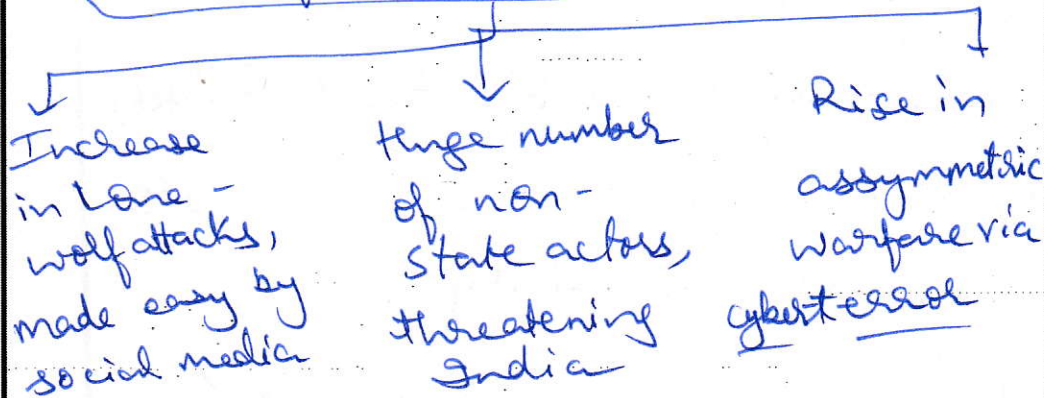 Increase
in Lone-
wolf attacks,
made easy by
social media
Huge number
of non-
state actors,
threatening
India
Rise in
assymmetric
warfare via
cyberterror